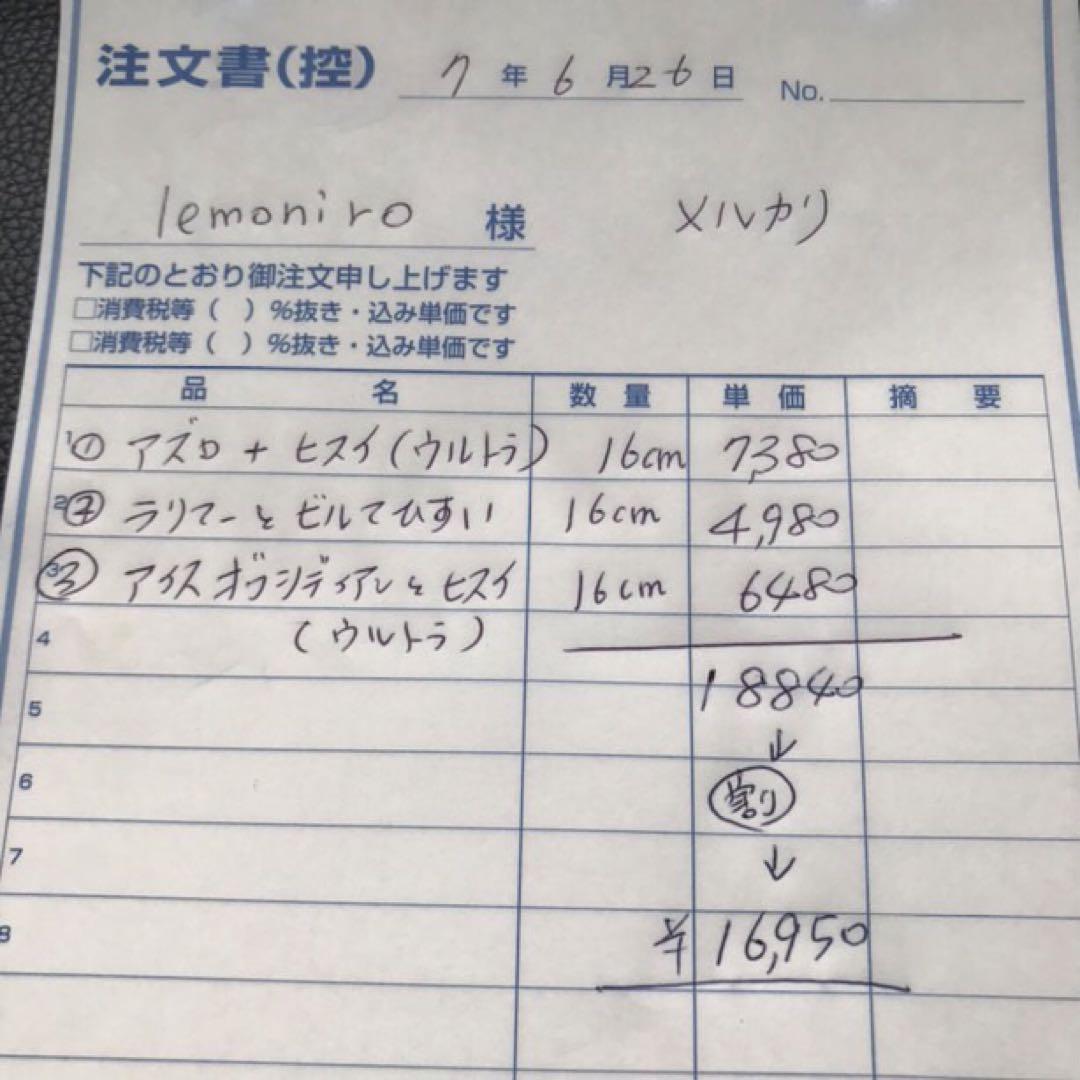 注文書(控) 7年6月26日 No.
lemoniro 様 メルカリ
下記のとおり御注文申し上げます
□消費税等( )%抜き・込み単価です
□消費税等( )%抜き・込み単価です
品名 数量 単価 摘要
1 ① アズロ + ヒスイ(ウルトラ) 16cm 7,380
2 ② ラリマーと ビルマひすい 16cm 4,980
3 ③ アイスオブシディアンと ヒスイ 16cm 6480
4 (ウルトラ)
18840
5
↓
6 割り
7 ↓
8 ¥16,950